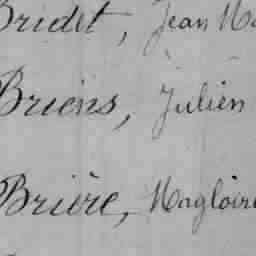 Bridet, Jean Ma
Briens, Julien
Brière, Magloire